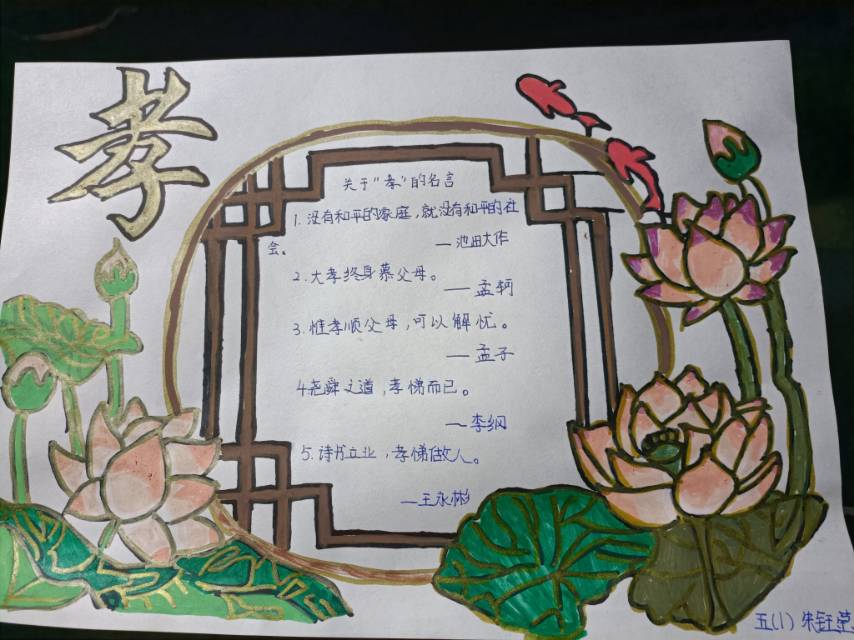 孝
关于“孝”的名言
1. 没有和平的家庭，就没有和平的社
会。
— 池田大作
2. 大孝终身慕父母。
— 孟轲
3. 惟孝顺父母，可以解忧。
— 孟子
4. 尧舜之道，孝悌而已。
— 李纲
5. 诗书立业，孝悌做人。
— 王永彬
五(1) 朱钰